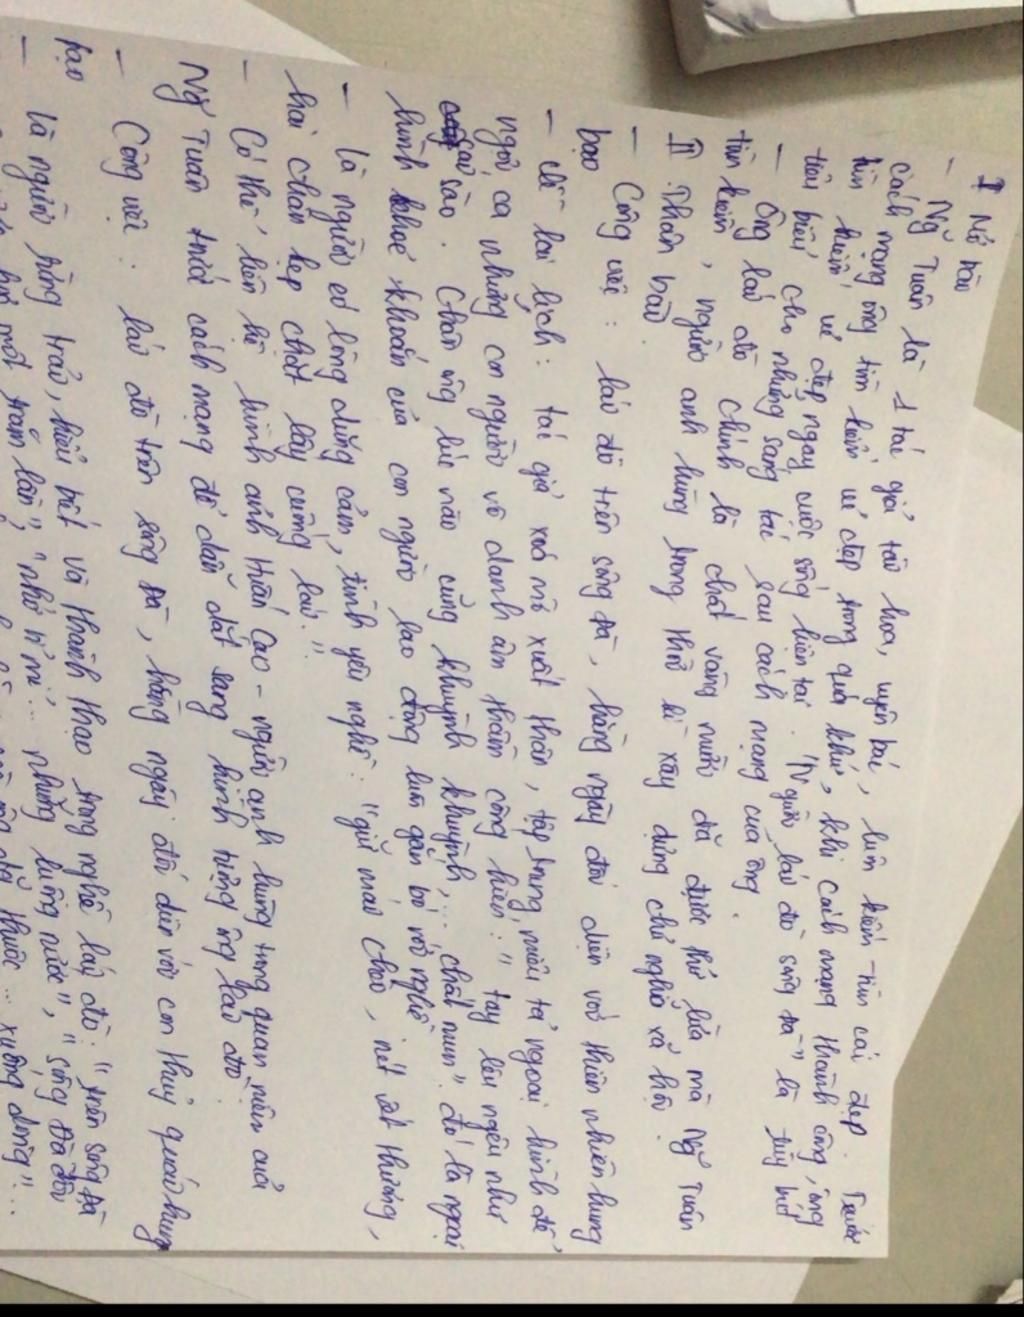 I Mở bài
- Ng~ Tuân là 1 tác giả tài hoa, uyên bác, luôn kiếm tìm cái đẹp. Trước
cách mạng ông tìm kiếm vẻ đẹp trong quá khứ, khi cách mạng thành công, ông
tìm kiếm vẻ đẹp ngay cuộc sống hiện tại. "Người lái đò sông Đà" là tùy bút
tiêu biểu cho những sáng tác sau cách mạng của ông.
- Ông lái đò chính là chất vàng mười đã được thử lửa mà Ng~ Tuân
tìm kiếm, người anh hùng trong thời kì xây dựng chủ nghĩa xã hội.
II Thân bài.
- Công việc: lái đò trên sông Đà, hằng ngày đối diện với thiên nhiên hung
bạo
- Về lai lịch: tác giả xoá mờ xuất thân, tập trung miêu tả ngoại hình để
ngợi ca những con người vô danh âm thầm cống hiến: "tay lêu nghêu như
cái sào. Chân ông lúc nào cũng khuỳnh khuỳnh,... chất mun". đó là ngoại
hình khoẻ khoắn của con người lao động luôn gắn bó với nghề
- là người có lòng dũng cảm, tình yêu nghề: "giữ mái chèo, nén vết thương,
hai chân kẹp chặt lấy cuống lái."
- Có thể liên hệ hình ảnh Huấn Cao - người anh hùng trong quan niệm của
Ng~ Tuân trước cách mạng để dẫn dắt sang hình tượng ông lái đò.
- Công việc: lái đò trên sông Đà, hằng ngày đối diện với con thuỷ quái hung
bạo
- là người từng trải, hiểu biết và thành thạo trong nghề lái đò: "trên sông Đà
một trăm lần", "nhớ tỉ mỉ... những luồng nước", "sông Đà đối
đã thuộc... xuống dòng"...